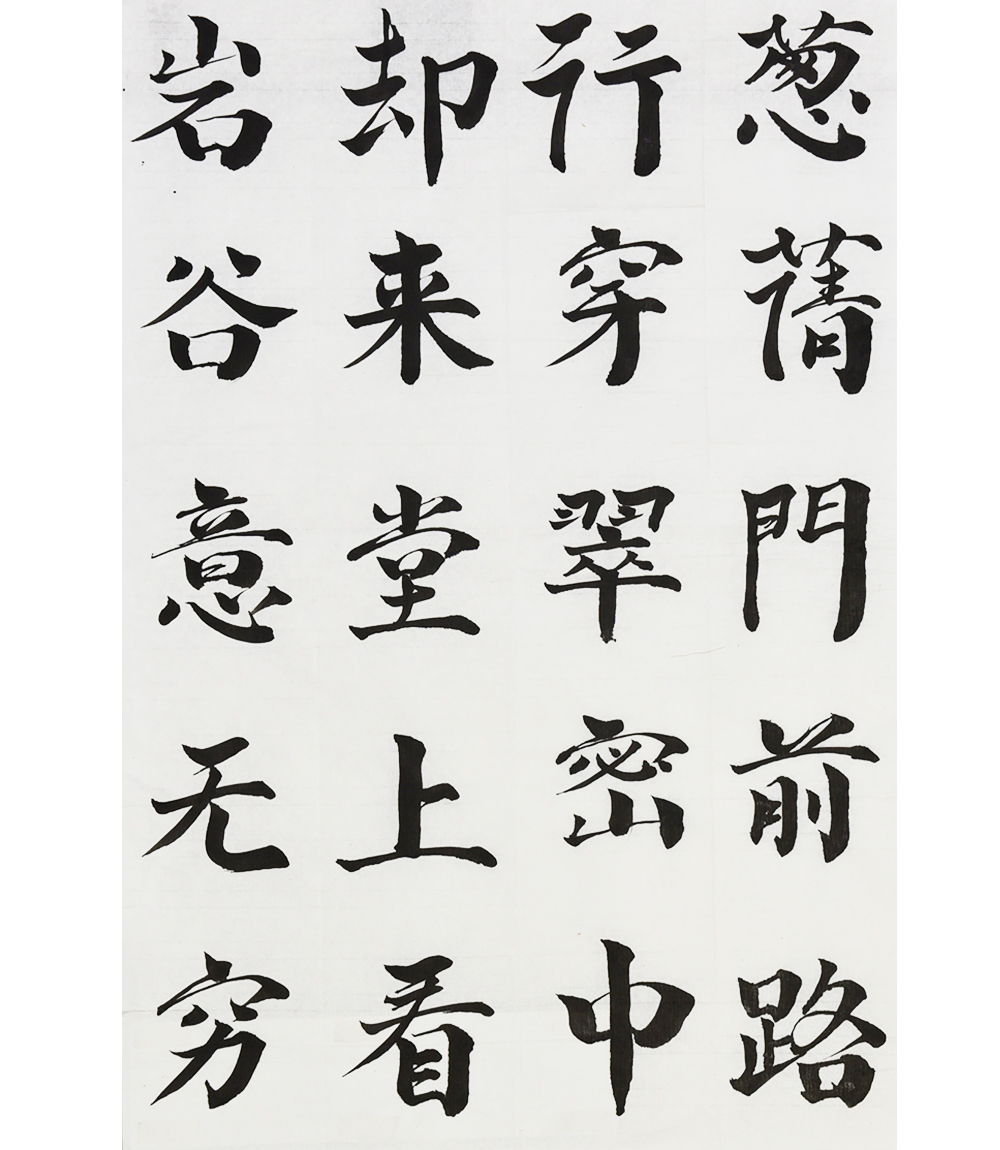 葱蒨門前路
行穿翠密中
却来堂上看
岩谷意无穷